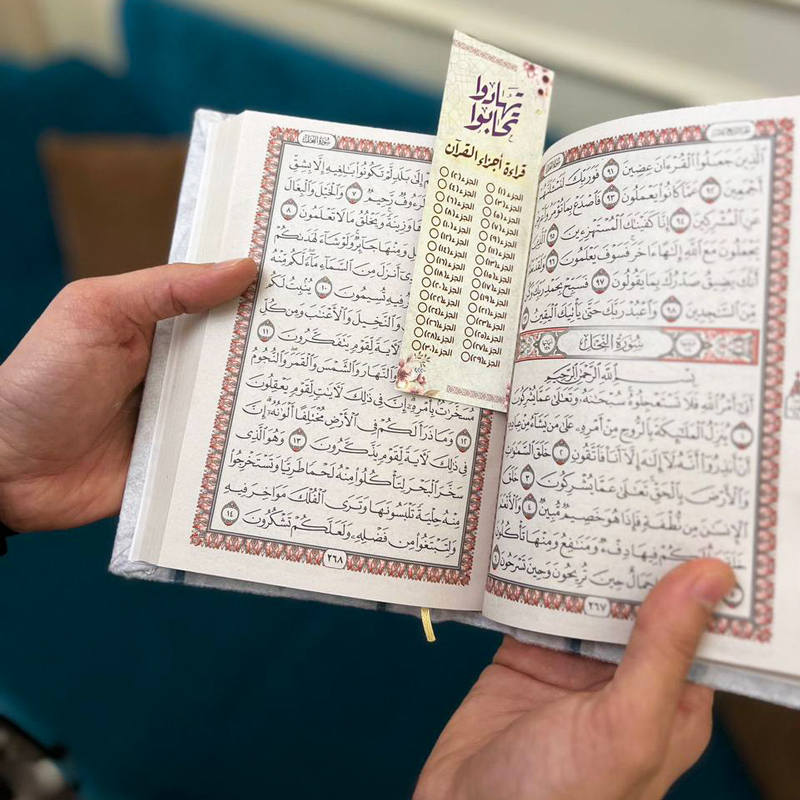 ٱلَّذِينَ جَعَلُوا۟ ٱلْقُرْءَانَ عِضِينَ ٩١ فَوَرَبِّكَ
أَجْمَعِينَ ٩٢ عَمَّا كَانُوا۟ يَعْمَلُونَ ٩٣ فَٱصْدَعْ بِمَا تُؤْمَرُ
عَنِ ٱلْمُشْرِكِينَ ٩٤ إِنَّا كَفَيْنَـٰكَ ٱلْمُسْتَهْزِءِينَ ٩٥
يَجْعَلُونَ مَعَ ٱللَّهِ إِلَـٰهًا ءَاخَرَ فَسَوْفَ يَعْلَمُونَ ٩٦ وَلَقَدْ
أَنَّكَ يَضِيقُ صَدْرُكَ بِمَا يَقُولُونَ ٩٧ فَسَبِّحْ بِحَمْدِ رَبِّكَ
مِّنَ ٱلسَّـٰجِدِينَ ٩٨ وَٱعْبُدْ رَبَّكَ حَتَّىٰ يَأْتِيَكَ ٱلْيَقِينُ
سُورَةُ النَّحْلِ
بِسْمِ ٱللَّهِ ٱلرَّحْمَـٰنِ ٱلرَّحِيمِ
أَتَىٰٓ أَمْرُ ٱللَّهِ فَلَا تَسْتَعْجِلُوهُ سُبْحَـٰنَهُۥ وَتَعَـٰلَىٰ عَمَّا يُشْرِكُونَ
١ يُنَزِّلُ ٱلْمَلَـٰٓئِكَةَ بِٱلرُّوحِ مِنْ أَمْرِهِۦ عَلَىٰ مَن يَشَآءُ مِنْ عِبَادِهِۦٓ
أَنْ أَنذِرُوٓا۟ أَنَّهُۥ لَآ إِلَـٰهَ إِلَّآ أَنَا۠ فَٱتَّقُونِ ٢ خَلَقَ ٱلسَّمَـٰوَٰتِ
وَٱلْأَرْضَ بِٱلْحَقِّ تَعَـٰلَىٰ عَمَّا يُشْرِكُونَ ٣ خَلَقَ
ٱلْإِنسَـٰنَ مِن نُّطْفَةٍ فَإِذَا هُوَ خَصِيمٌ مُّبِينٌ ٤ وَٱلْأَنْعَـٰمَ
خَلَقَهَا لَكُمْ فِيهَا دِفْءٌ وَمَنَـٰفِعُ وَمِنْهَا تَأْكُلُونَ
جَمَالٌ حِينَ تُرِيحُونَ وَحِينَ تَسْرَحُونَ ٦
٢٦٧
تهادوا
تحابوا
قراءة أجزاء القرآن
الجزء (١) الجزء (٢)
الجزء (٣) الجزء (٤)
الجزء (٥) الجزء (٦)
الجزء (٧) الجزء (٨)
الجزء (٩) الجزء (١٠)
الجزء (١١) الجزء (١٢)
الجزء (١٣) الجزء (١٤)
الجزء (١٥) الجزء (١٦)
الجزء (١٧) الجزء (١٨)
الجزء (١٩) الجزء (٢٠)
الجزء (٢١) الجزء (٢٢)
الجزء (٢٣) الجزء (٢٤)
الجزء (٢٥) الجزء (٢٦)
الجزء (٢٧) الجزء (٢٨)
الجزء (٢٩) الجزء (٣٠)
سُورَةُ النَّحْلِ
إِلَىٰ بَلَدٍ لَّمْ تَكُونُوا۟ بَـٰلِغِيهِ إِلَّا بِشِقِّ
رَّحِيمٌ ٧ وَٱلْخَيْلَ وَٱلْبِغَالَ
وَزِينَةً وَيَخْلُقُ مَا لَا تَعْلَمُونَ ٨
وَمِنْهَا جَآئِرٌ وَلَوْ شَآءَ لَهَدَىٰكُمْ
أَنزَلَ مِنَ ٱلسَّمَآءِ مَآءً لَّكُم مِّنْهُ
فِيهِ تُسِيمُونَ ١٠ يُنۢبِتُ لَكُم
وَٱلنَّخِيلَ وَٱلْأَعْنَـٰبَ وَمِن كُلِّ
لَـَٔايَةً لِّقَوْمٍ يَتَفَكَّرُونَ ١١
وَٱلنَّهَارَ وَٱلشَّمْسَ وَٱلْقَمَرَ وَٱلنُّجُومُ
مُسَخَّرَٰتٌۢ بِأَمْرِهِۦٓ إِنَّ فِى ذَٰلِكَ لَـَٔايَـٰتٍ لِّقَوْمٍ يَعْقِلُونَ
١٢ وَمَا ذَرَأَ لَكُمْ فِى ٱلْأَرْضِ مُخْتَلِفًا أَلْوَٰنُهُۥٓ إِنَّ
فِى ذَٰلِكَ لَـَٔايَةً لِّقَوْمٍ يَذَّكَّرُونَ ١٣ وَهُوَ ٱلَّذِى
سَخَّرَ ٱلْبَحْرَ لِتَأْكُلُوا۟ مِنْهُ لَحْمًا طَرِيًّا وَتَسْتَخْرِجُوا۟
مِنْهُ حِلْيَةً تَلْبَسُونَهَا وَتَرَى ٱلْفُلْكَ مَوَاخِرَ فِيهِ
وَلِتَبْتَغُوا۟ مِن فَضْلِهِۦ وَلَعَلَّكُمْ تَشْكُرُونَ ١٤
٢٦٨